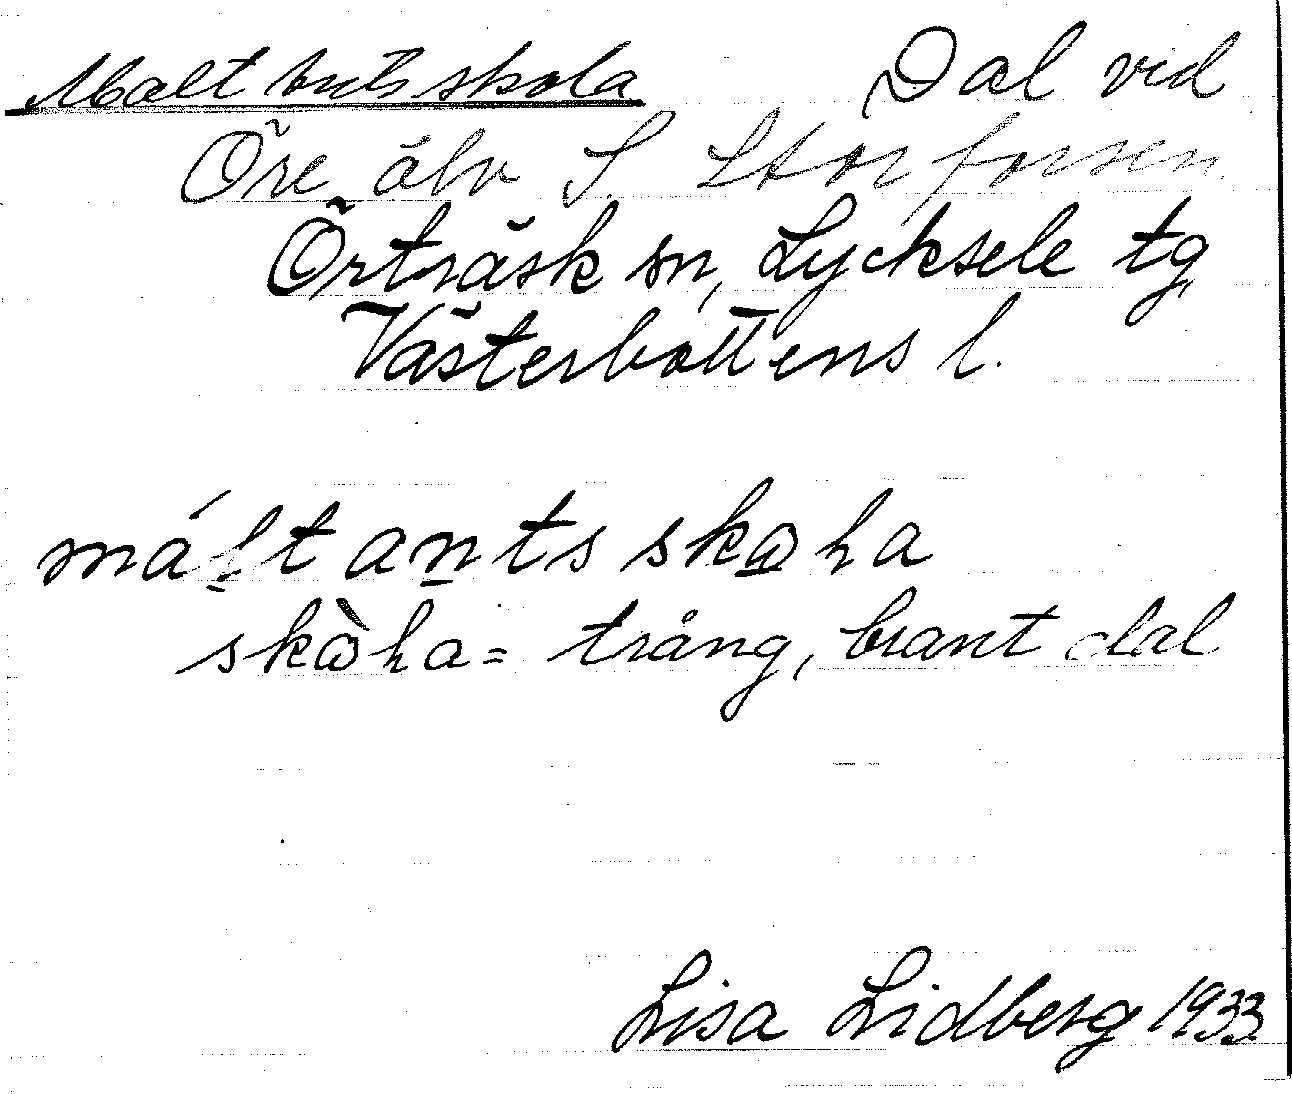 Maltantsskola Dal vid
Öre älv S. Storforsen
Örträsk sn, Lycksele tg
Västerbottens l.
máltantsskoha
skòha = trång, brant dal
Lisa Lidberg 1933